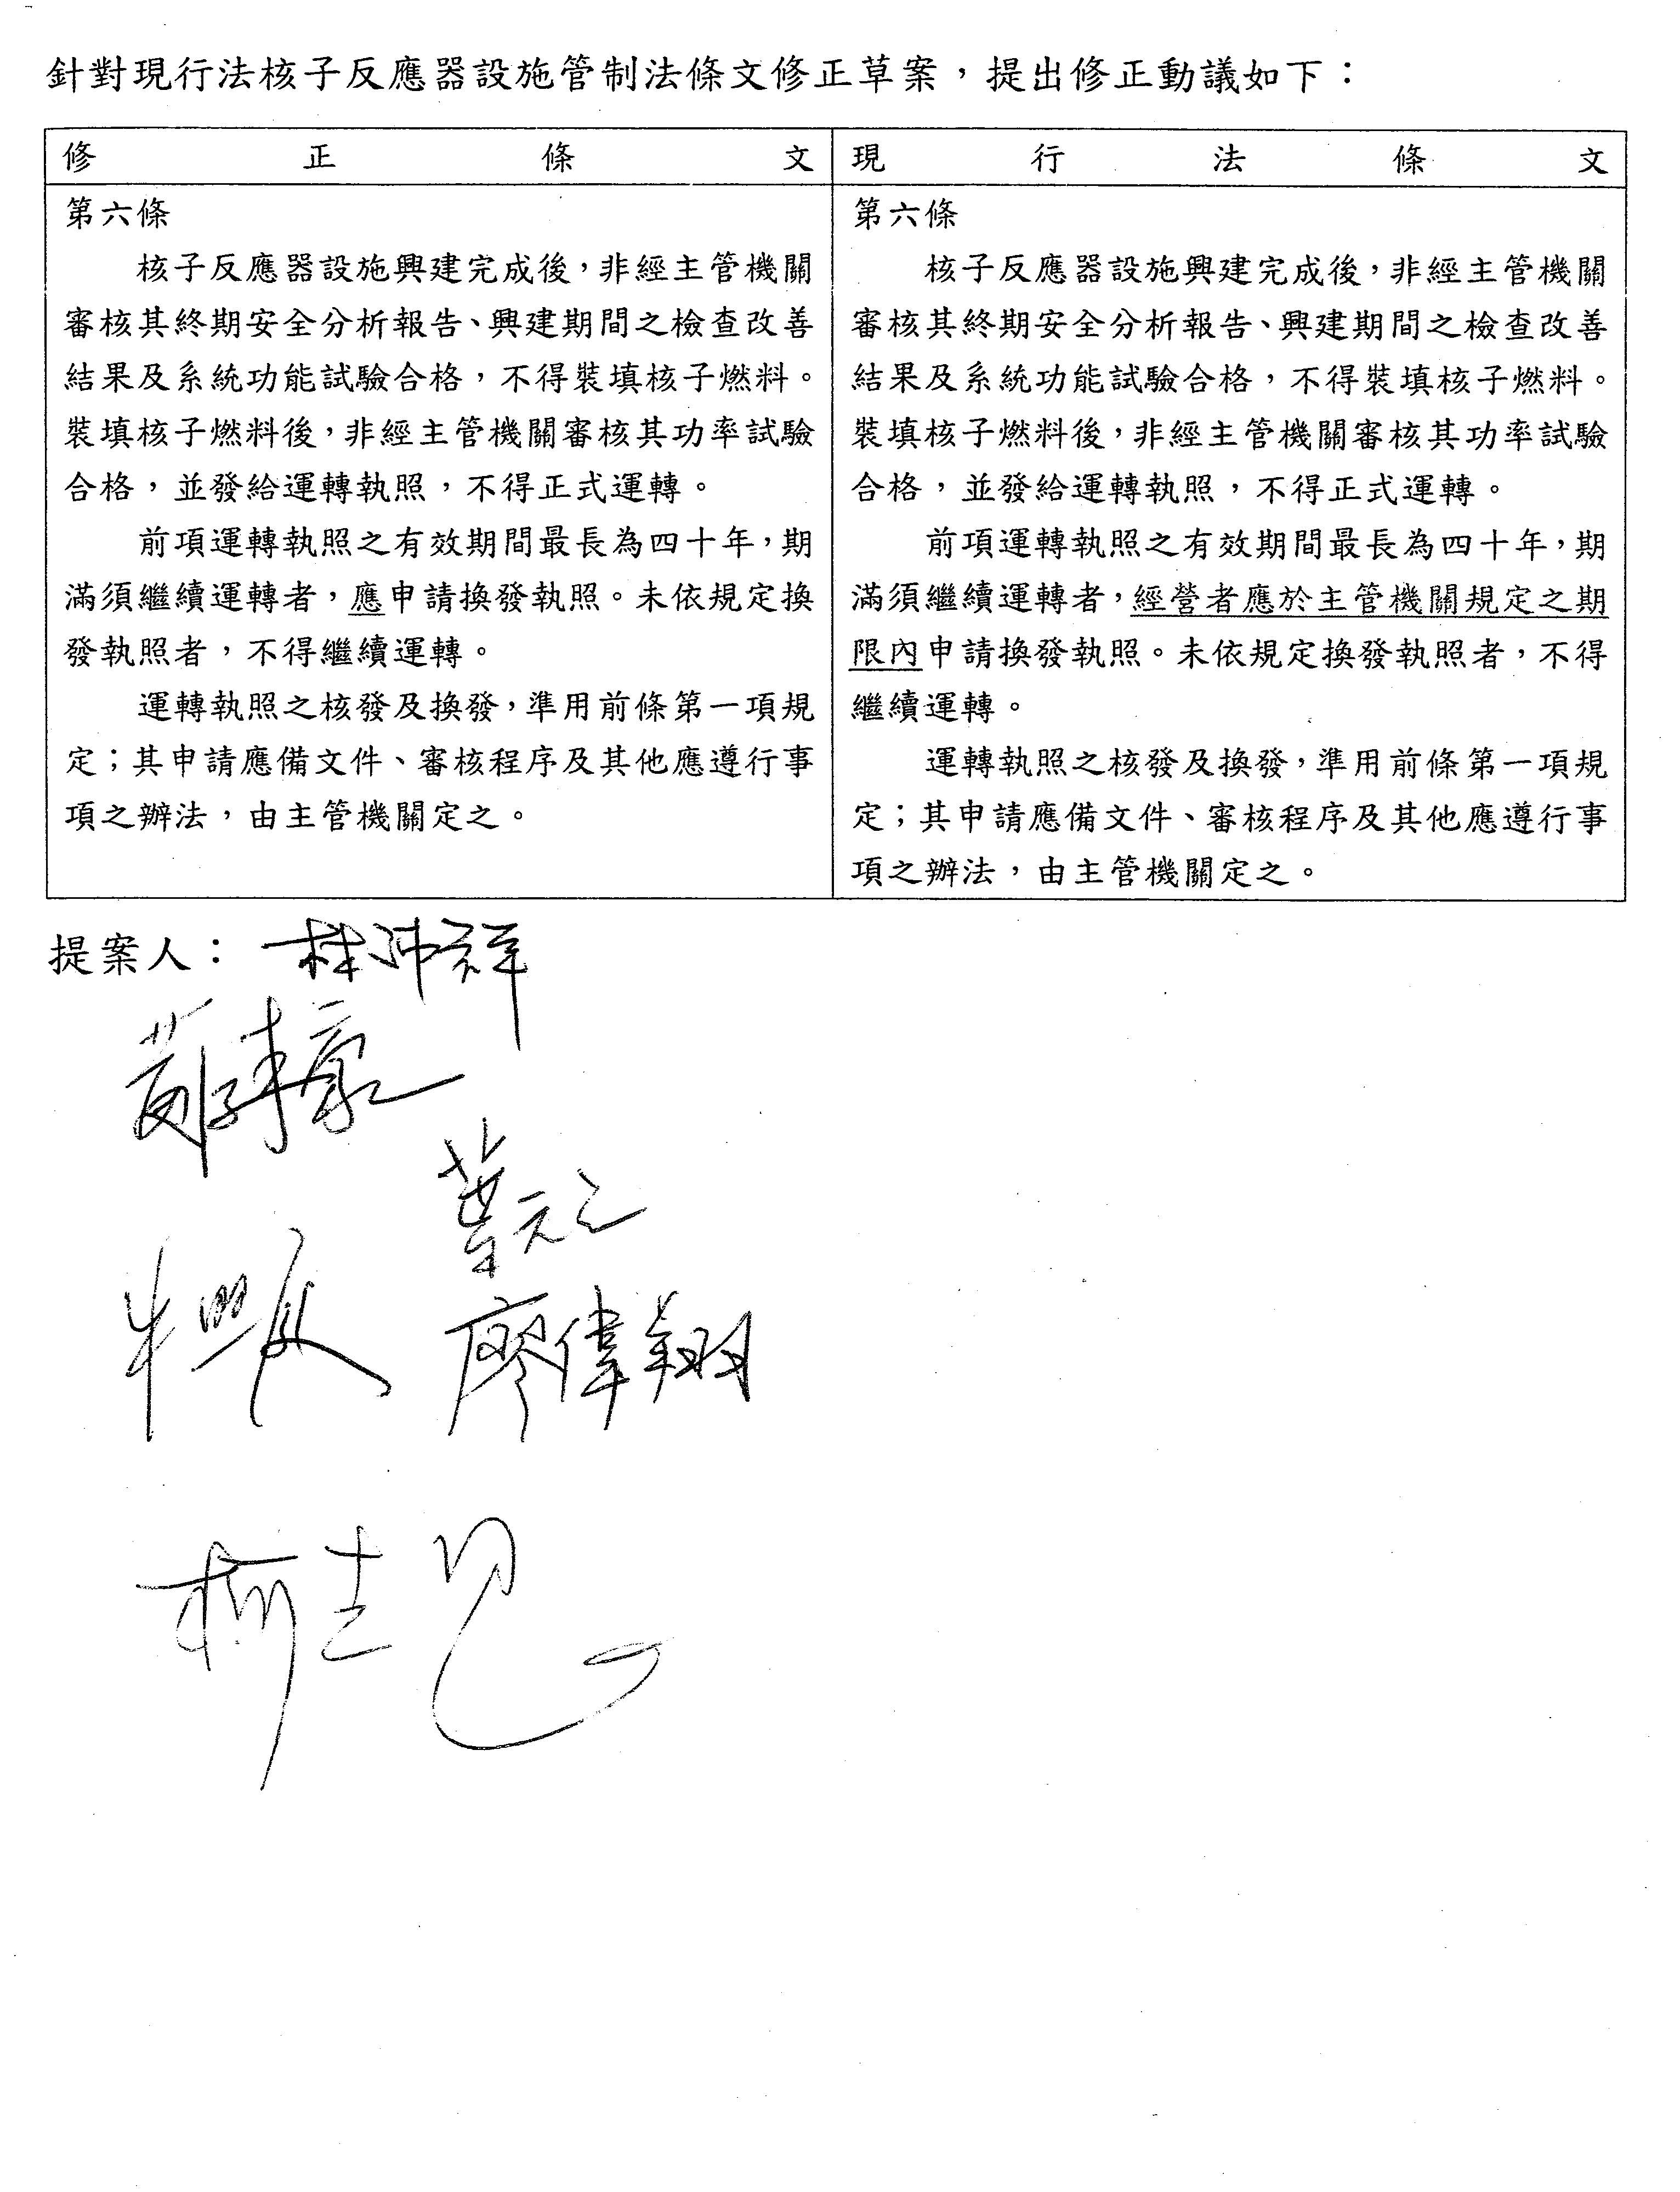 針對現行法核子反應器設施管制法條文修正草案，提出修正動議如下：
修正條文
第六條
核子反應器設施興建完成後，非經主管機關
審核其終期安全分析報告、興建期間之檢查改善
結果及系統功能試驗合格，不得裝填核子燃料。
裝填核子燃料後，非經主管機關審核其功率試驗
合格，並發給運轉執照，不得正式運轉。
前項運轉執照之有效期間最長為四十年，期
滿須繼續運轉者，應申請換發執照。未依規定換
發執照者，不得繼續運轉。
運轉執照之核發及換發，準用前條第一項規
定；其申請應備文件、審核程序及其他應遵行事
項之辦法，由主管機關定之。
現行法條文
第六條
核子反應器設施興建完成後，非經主管機關
審核其終期安全分析報告、興建期間之檢查改善
結果及系統功能試驗合格，不得裝填核子燃料。
裝填核子燃料後，非經主管機關審核其功率試驗
合格，並發給運轉執照，不得正式運轉。
前項運轉執照之有效期間最長為四十年，期
滿須繼續運轉者，經營者應於主管機關規定之期
限內申請換發執照。未依規定換發執照者，不得
繼續運轉。
運轉執照之核發及換發，準用前條第一項規
定；其申請應備文件、審核程序及其他應遵行事
項之辦法，由主管機關定之。
提案人：林沛祥
葉元之
廖偉翔
柯志恩